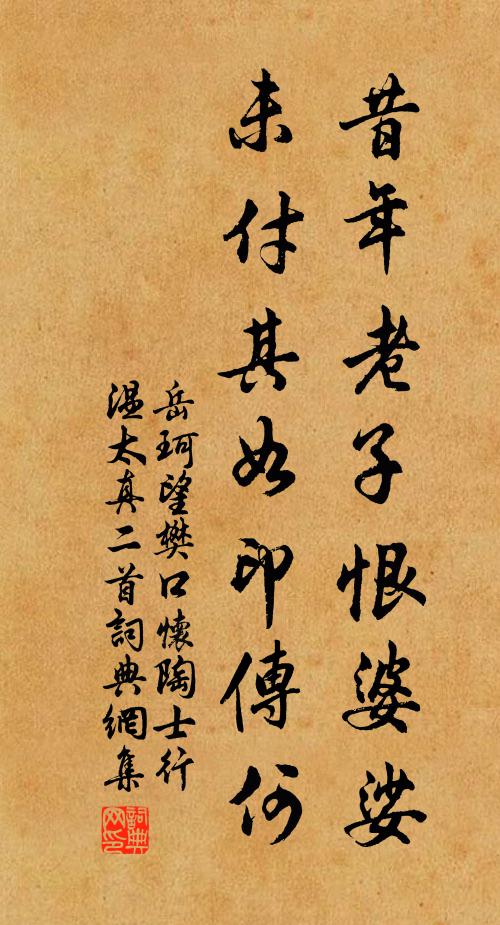 昔年老子恨婆娑
未付其如印傳何
岳珂望樊口懷陶士行
溫太真二首詞典網集
詞典网印